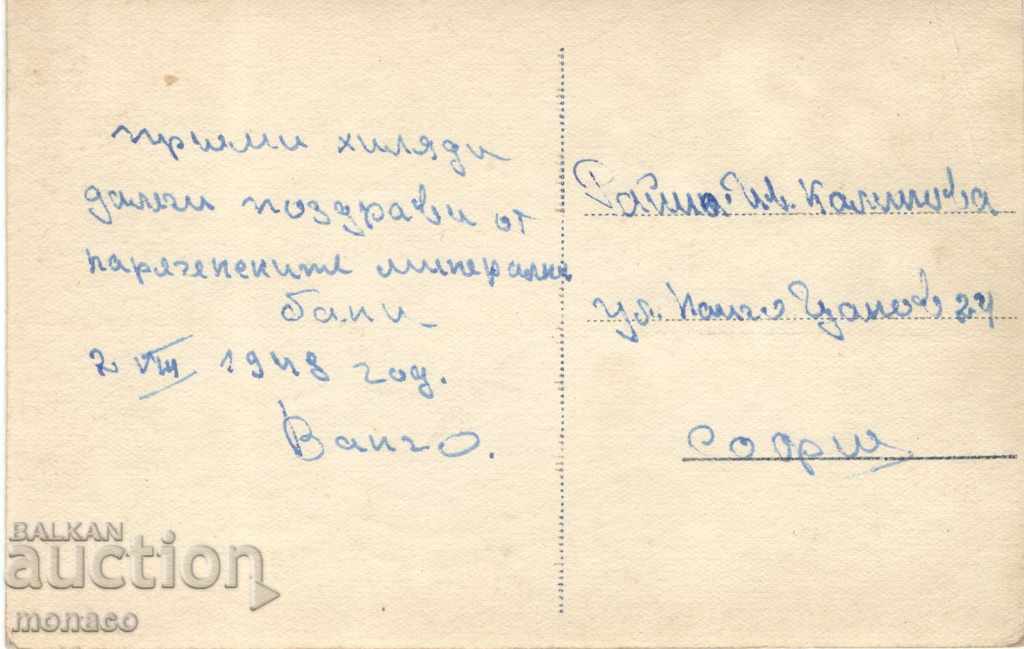 приеми хиляди
далечни поздрави от
нареченските минерални
бани –
2 VIII 1948 год.
Ванчо.
Райна Ив. Калинова
ул. Панчо Цанов 24
София
BALKAN
auction
monaco